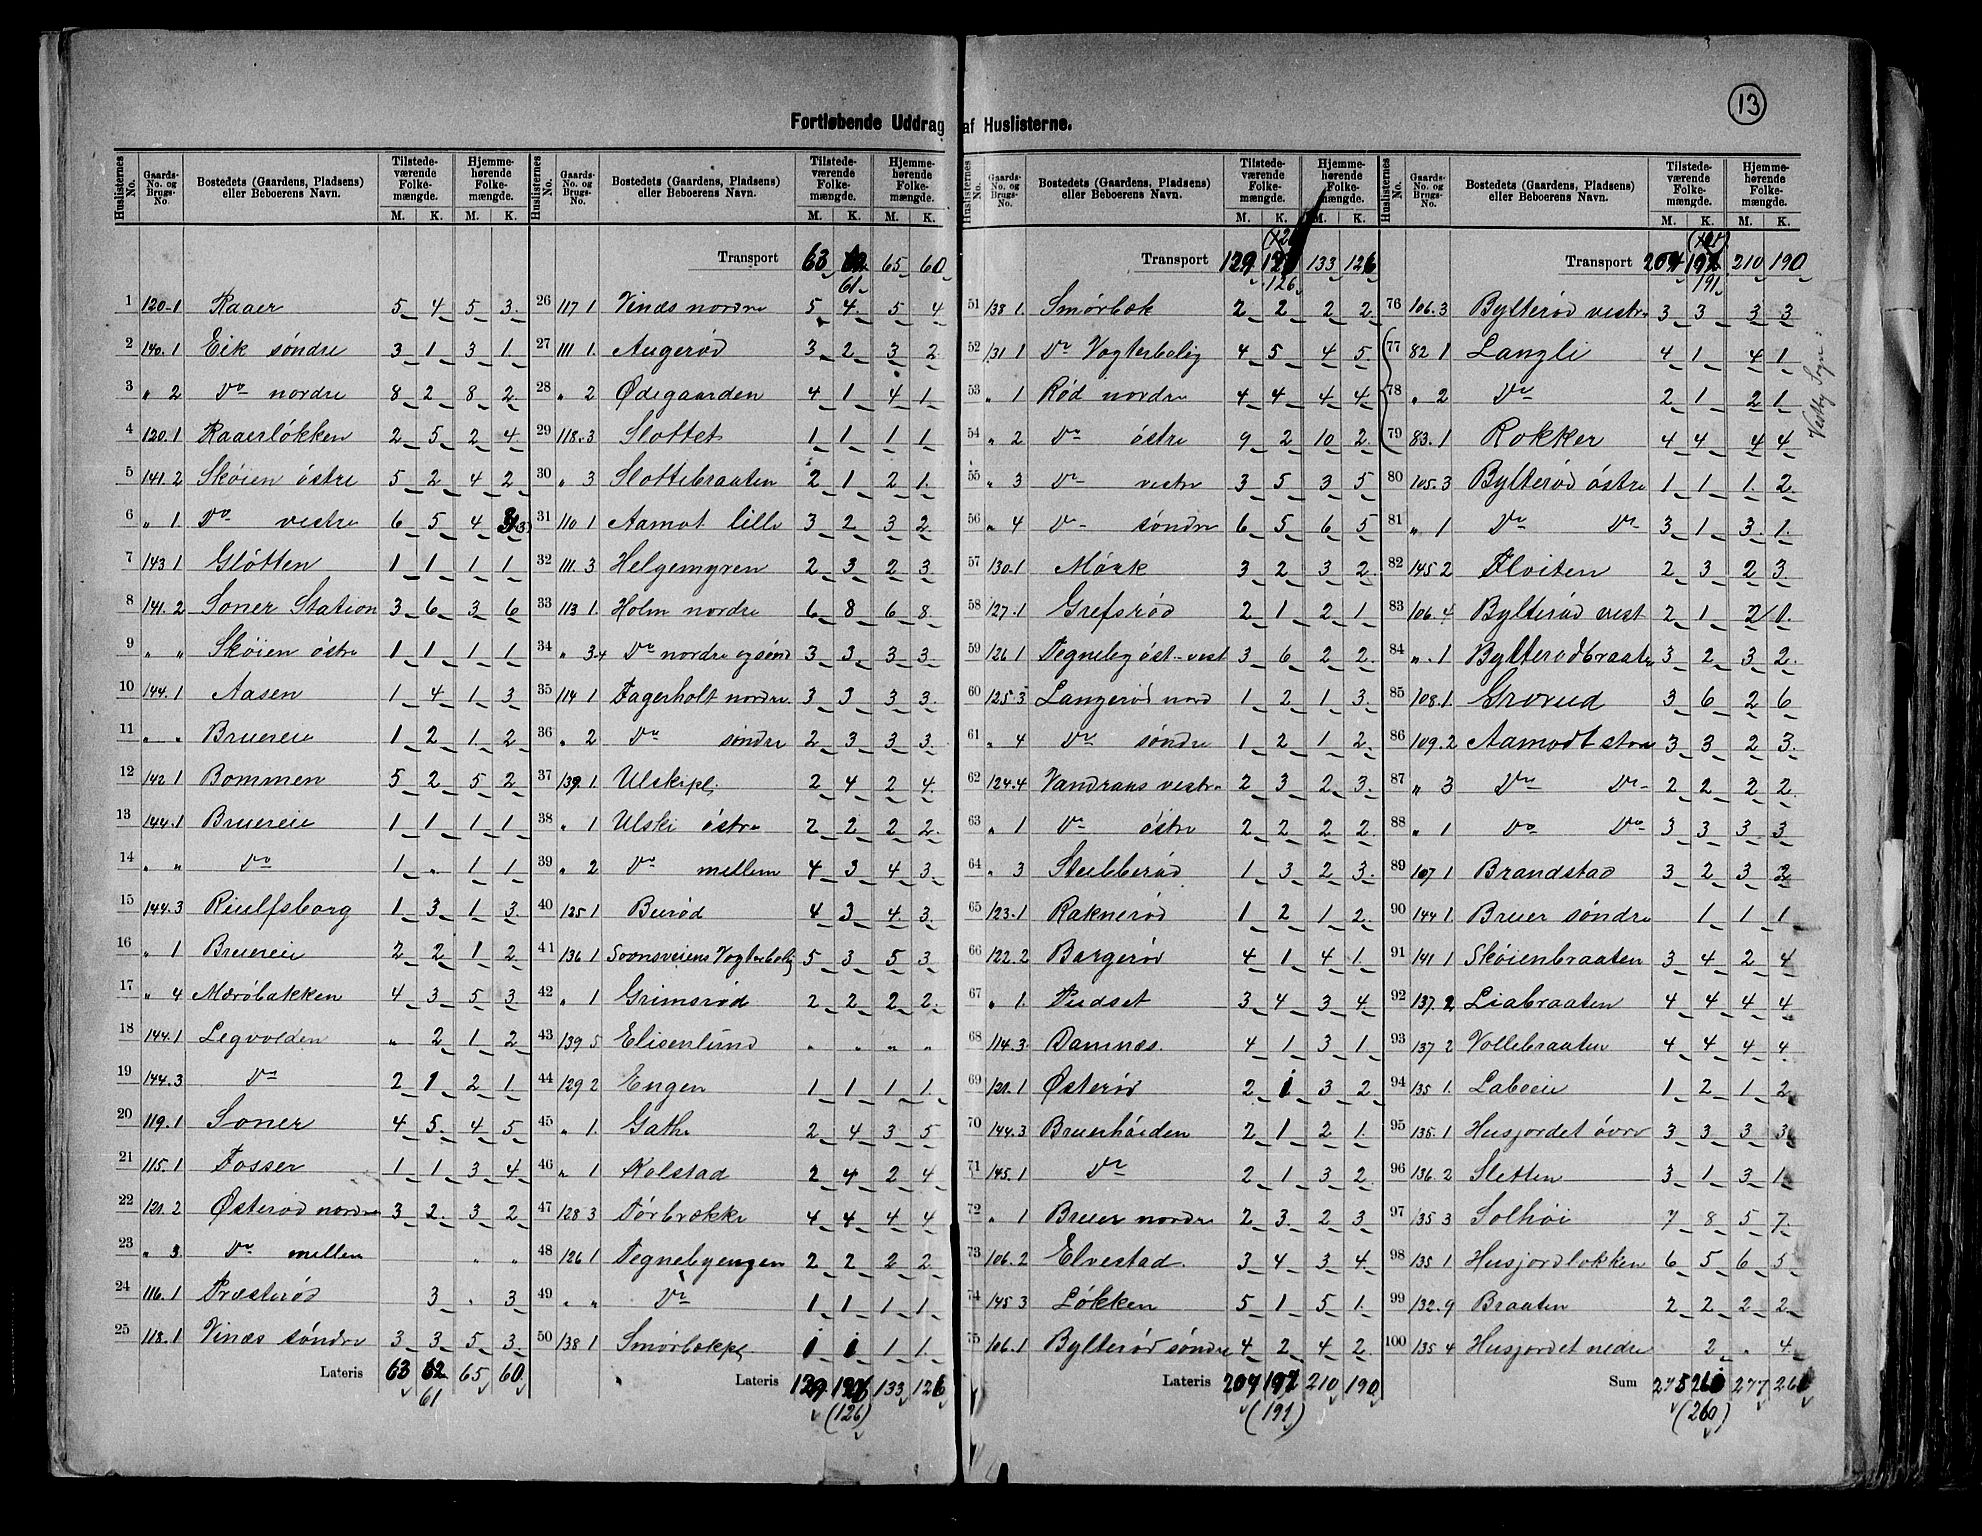 13
Fortløbende Uddrag af Huslisterne.
Huslisternes No. | Gaards-No. og Brugs-No. | Bostedets (Gaardens, Pladsens) eller Beboerens Navn. | Tilstede-værende Folke-mængde. M. K. | Hjemme-hørende Folke-mængde. M. K.
1 120.1 Raaer 5 4 5 3
2 140.1 Eik søndre 3 1 3 1
3 " 2 Do nordre 8 2 8 2
4 120.1 Raaerløkken 2 5 2 4
5 141.2 Skøien østre 5 2 4 2
6 " 1 Do vestre 6 5 4 (3)
7 143 1 Gløtten 1 1 1 1
8 141.2 Soner Station 3 6 3 6
9 " " Skøien østre 1 1 1 1
10 144.1 Aasen 1 4 1 3
11 " " Bruereie 1 2 1 2
12 142.1 Bommen 5 2 5 2
13 144.1 Bruereie 1 1 1 1
14 " " Do 1 " 1 1
15 144.3 Riulfsborg 1 3 1 3
16 " 1 Bruereie 2 2 1 2
17 " 4 Mærøbakken 4 3 5 3
18 144.1 Legvolden " 2 1 2
19 144.3 Do 2 1 2 1
20 119.1 Soner 4 5 4 5
21 115.1 Fosser 1 1 3 4
22 121.2 Østerød nordre 3 2 3 2
23 " 3 Do mellem " "
24 116.1 Præsterød 3 " 3
25 118.1 Vinæs søndre 3 3 5 3
Lateris 63 62 65 60
61
Transport 63 62 65 60
61
26 117 1 Vinæs nordre 5 4 5 4
27 111 1. Augerød 3 2 3 2
28 " 2 Ødegaarden 4 1 4 1
29 118.3 Slottet 1 1 1 1
30 " 3 Slottebraaten 2 1 2 1
31 110 1 Aamot lille 3 2 3 2
32 111.3 Helgemyren 2 3 2 3
33 113 1. Holm nordre 6 8 6 8
34 " 3.4 Do nordre og sønd 3 3 3 3
35 114 1 Fagerholt nordre 3 3 3 3
36 " 2 Do søndre 2 3 3 3
37 139.1 Ulskipl. 2 4 2 4
38 " 1 Ulski østre 2 2 2 2
39 " 2 Do mellem 4 3 4 3
40 125 1 Burød 4 3 4 3
41 136 1 Soonsveiens Vogterbolig 5 3 5 3
42 " 1 Grimsrød 2 2 2 2
43 139 5 Elisenlund " " " "
44 129 2 Engen 1 1 1 1
45 " 1. Gath. 2 4 3 5
46 " 1 Kolstad 2 4 2 4
47 128 3 Tørbrække 4 4 4 4
48 126 1 Tegnebyengen 2 2 2 2
49 " " Do 1 1 1 1
50 138 1 Smørbækpl 1 1 1 1
Lateris 129 127 133 126
(126)
Transport 129 133 126
126
51 138 1. Smørbæk 2 2 2 2
52 131 1 Do Vogterbolig 4 5 4 5
53 " 1 Rød nordre 4 4 4 4
54 " 2 Do østre 9 2 10 2
55 " 3 Do vestre 3 5 3 5
56 " 4 Do søndre 6 5 6 5
57 130.1 Mørk 3 2 3 2
58 127.1 Grefsrød 2 1 2 1
59 126 1 Tegneby øst-vest 3 6 2 2
60 125 3 Langerød nord 1 2 1 3
61 " 4 Do søndre 1 2 1 2
62 124.4 Vandrans vestre 2 3 2 3
63 " 1 Do østre 2 2 2 2
64 " 3 Stubberød 1 3 2 3
65 123.1 Raknerød 1 2 1 2
66 122.2 Bergerød 4 1 4 1
67 " 1. Pudset 3 4 3 4
68 114.3. Damnæs 4 1 3 1
69 121.1 Østerød 2 1 3 2
70 144.3 Bruerhøiden 2 1 2 1
71 145.1 Do 2 1 3 2
72 " 1 Bruer nordre 2 3 2 3
73 106.2 Elvestad 3 4 3 4
74 145.3 Løkken 5 1 5 1
75 106.1 Bylterød søndre 4 2 4 2
Lateris 204 192 210 190
(191)
Transport 204 192 210 190
191
76 106.3 Bylterød vestre 3 3 3 3
77 82 1 Langli 4 1 4 1
78 " 2 Do 2 1 2 1
79 83.1 Rokker 4 4 4 4
Vestby Sogn
80 105.3 Bylterød østre 1 1 1 2
81 " 1 Do Do 3 1 3 1
82 145 2 Floiten 2 3 2 3
83 106.4 Bylterød vest 2 1 2 1
84 " 1 Bylterødbraaten 3 2 3 2
85 108.1 Grorud 3 6 2 6
86 109.2 Aamodt store 3 3 2 3
87 " 3 Do Do 2 2 2 2
88 " 1 Do Do 3 3 3 3
89 107 1 Brandstad 3 2 3 2
90 144 1. Bruer søndre 1 1 1
91 141 1 Skøienbraaten 3 4 2 4
92 137.2 Liabraaten 4 4 4 4
93 137 2 Vollebraaten 4 4 4 4
94 135 1. Laboeie 1 2 1 2
95 135.1 Husjordet øvre 3 3 3 3
96 136.2 Sletten 3 1 3 1
97 135 3 Solhøi 7 8 5 7
98 135 1 Husjordløkken 6 5 6 5
99 132.9 Braaten 2 2 2 2
100 135 4 Husjordet nedre 2 " 4
Sum 275 260 277 261
(260)